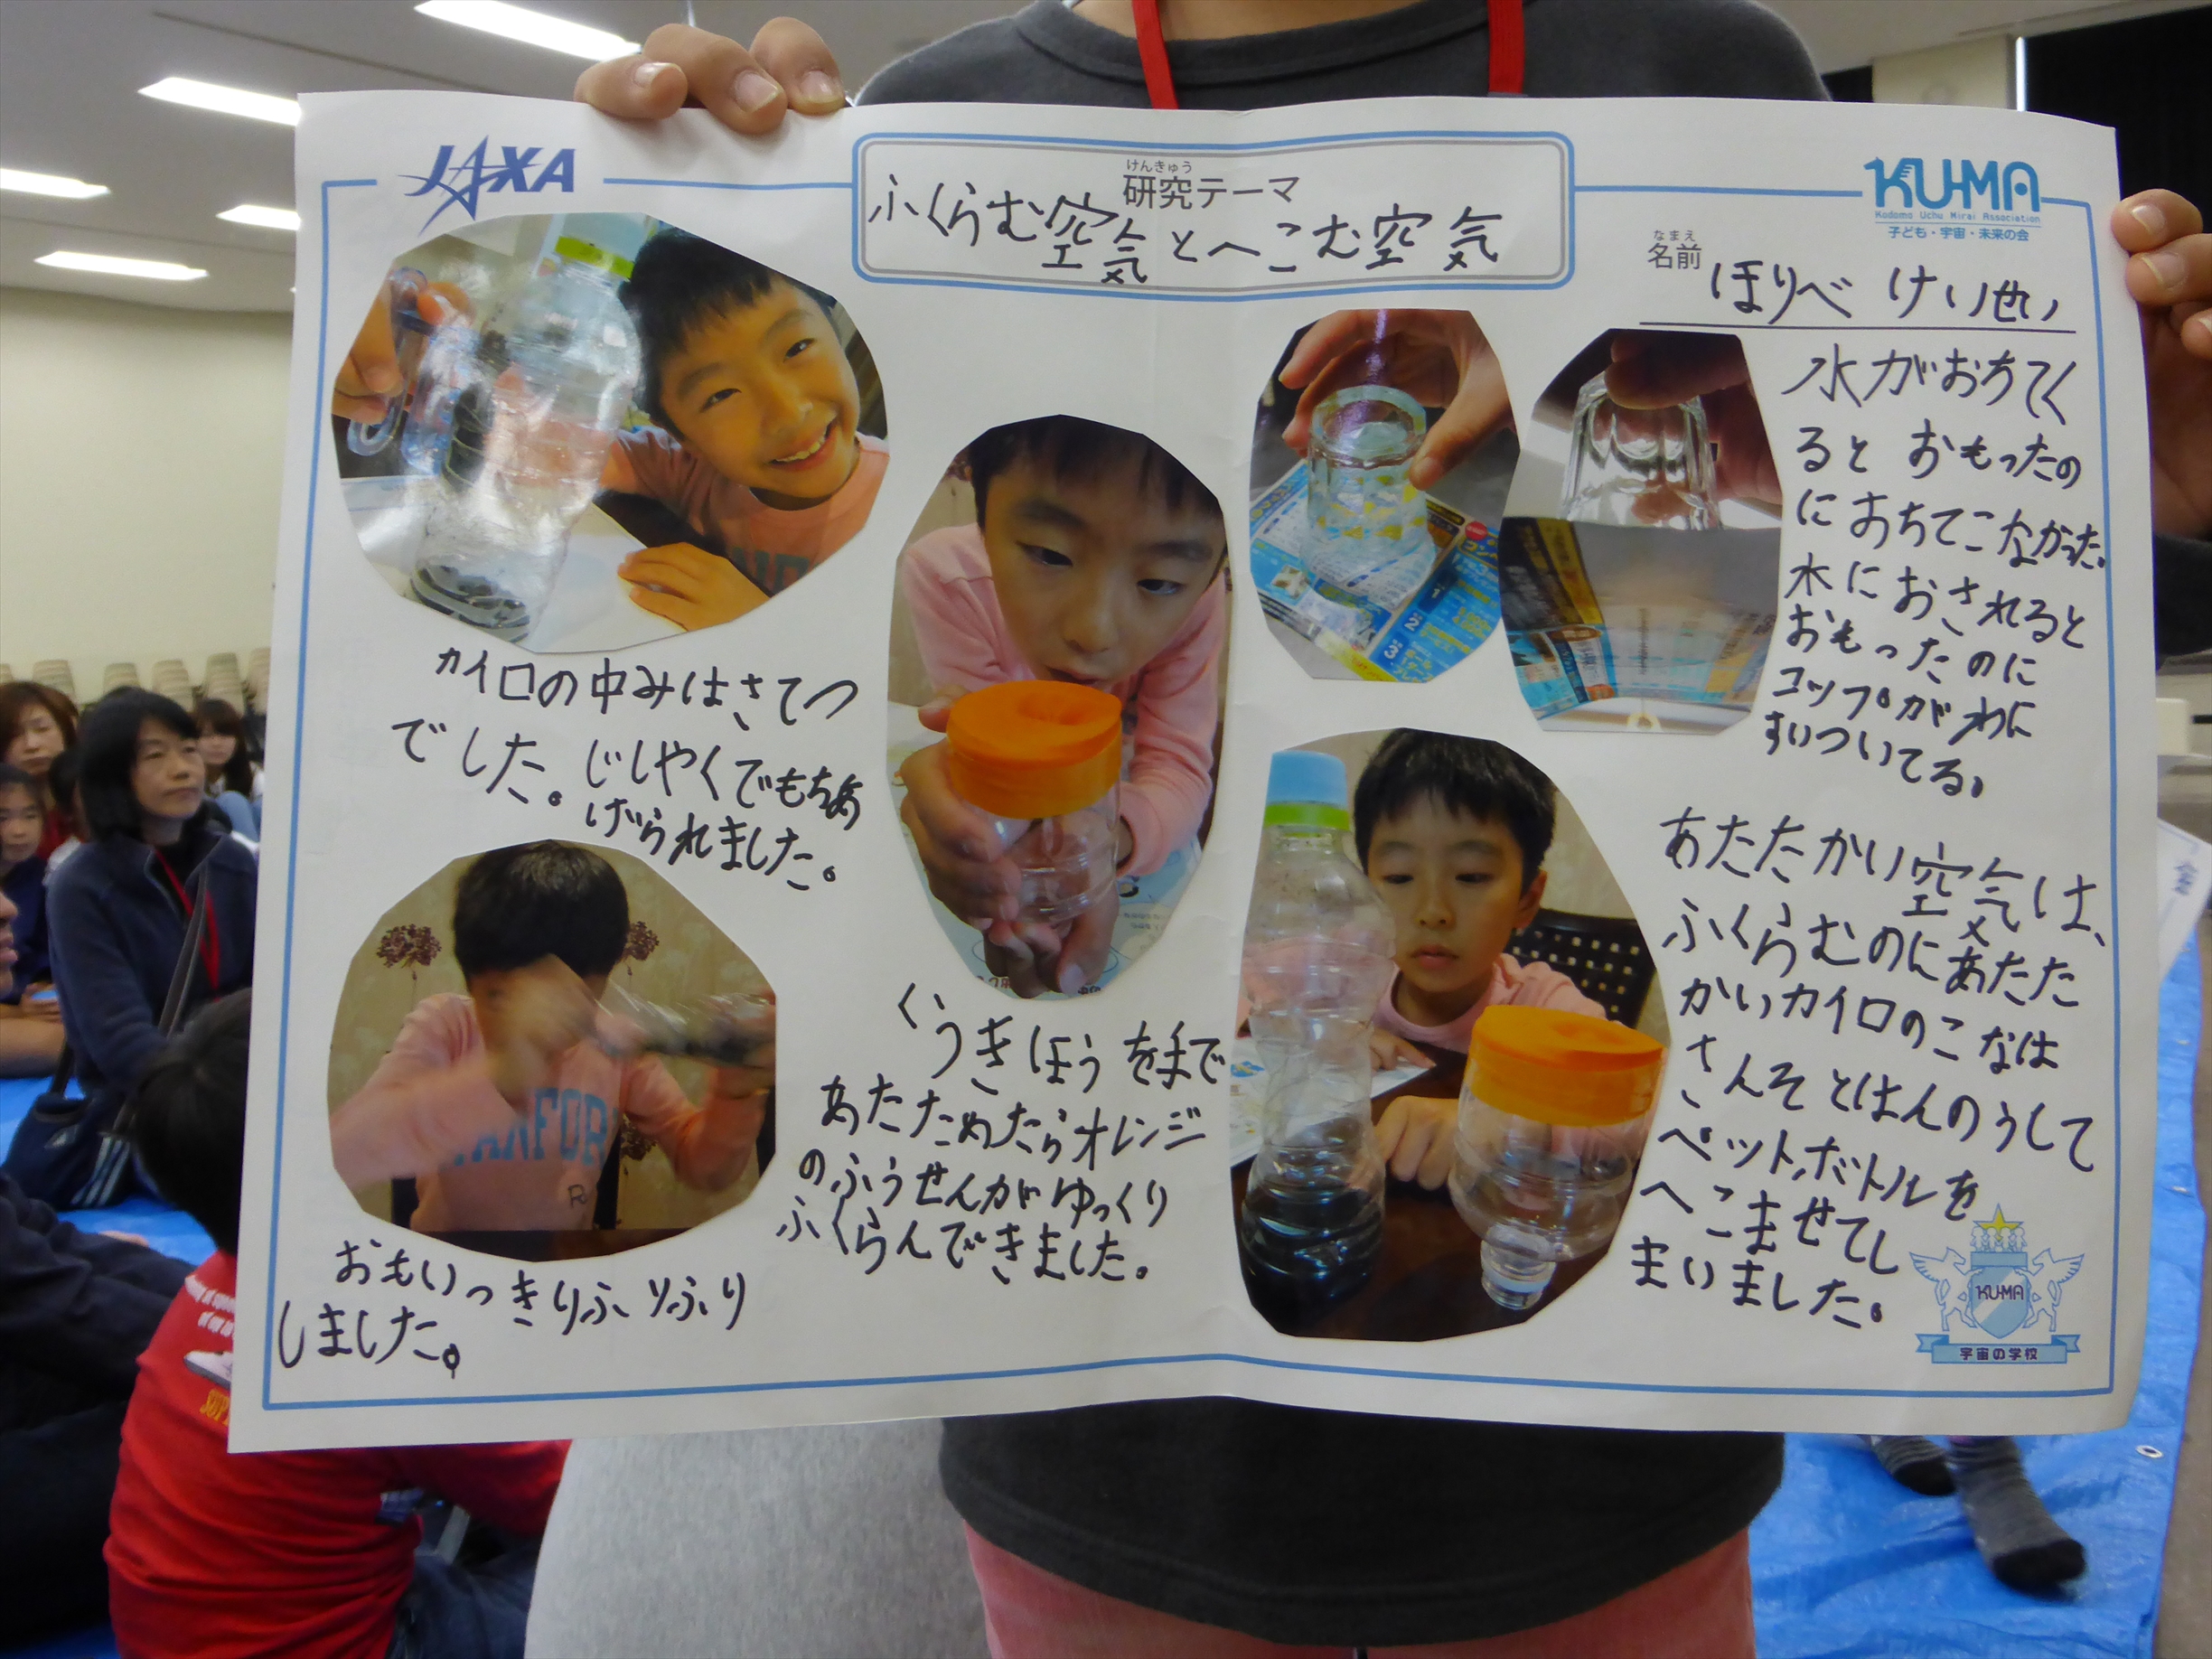 JAXA
けんきゅう
研究テーマ
ふくらむ空気とへこむ空気
KU-MA
Kodomo Uchu Mirai Association
子ども・宇宙・未来の会
なまえ
名前
ほりべ けいせい
カイロの中みはさてつ
でした。じしゃくでもちあ
げられました。
おもいっきりふりふり
しました。
くうきほうを手で
あたためたらオレンジ
のふうせんがゆっくり
ふくらんできました。
水がおちてく
ると おもったの
におちてこなかった。
水におされると
おもったのに
コップがわに
すいついてる。
あたたかい空気は、
ふくらむのにあたた
かいカイロのこなは
さんそとはんのうして
ペットボトルを
へこませてし
まいました。
KU-MA
宇宙の学校